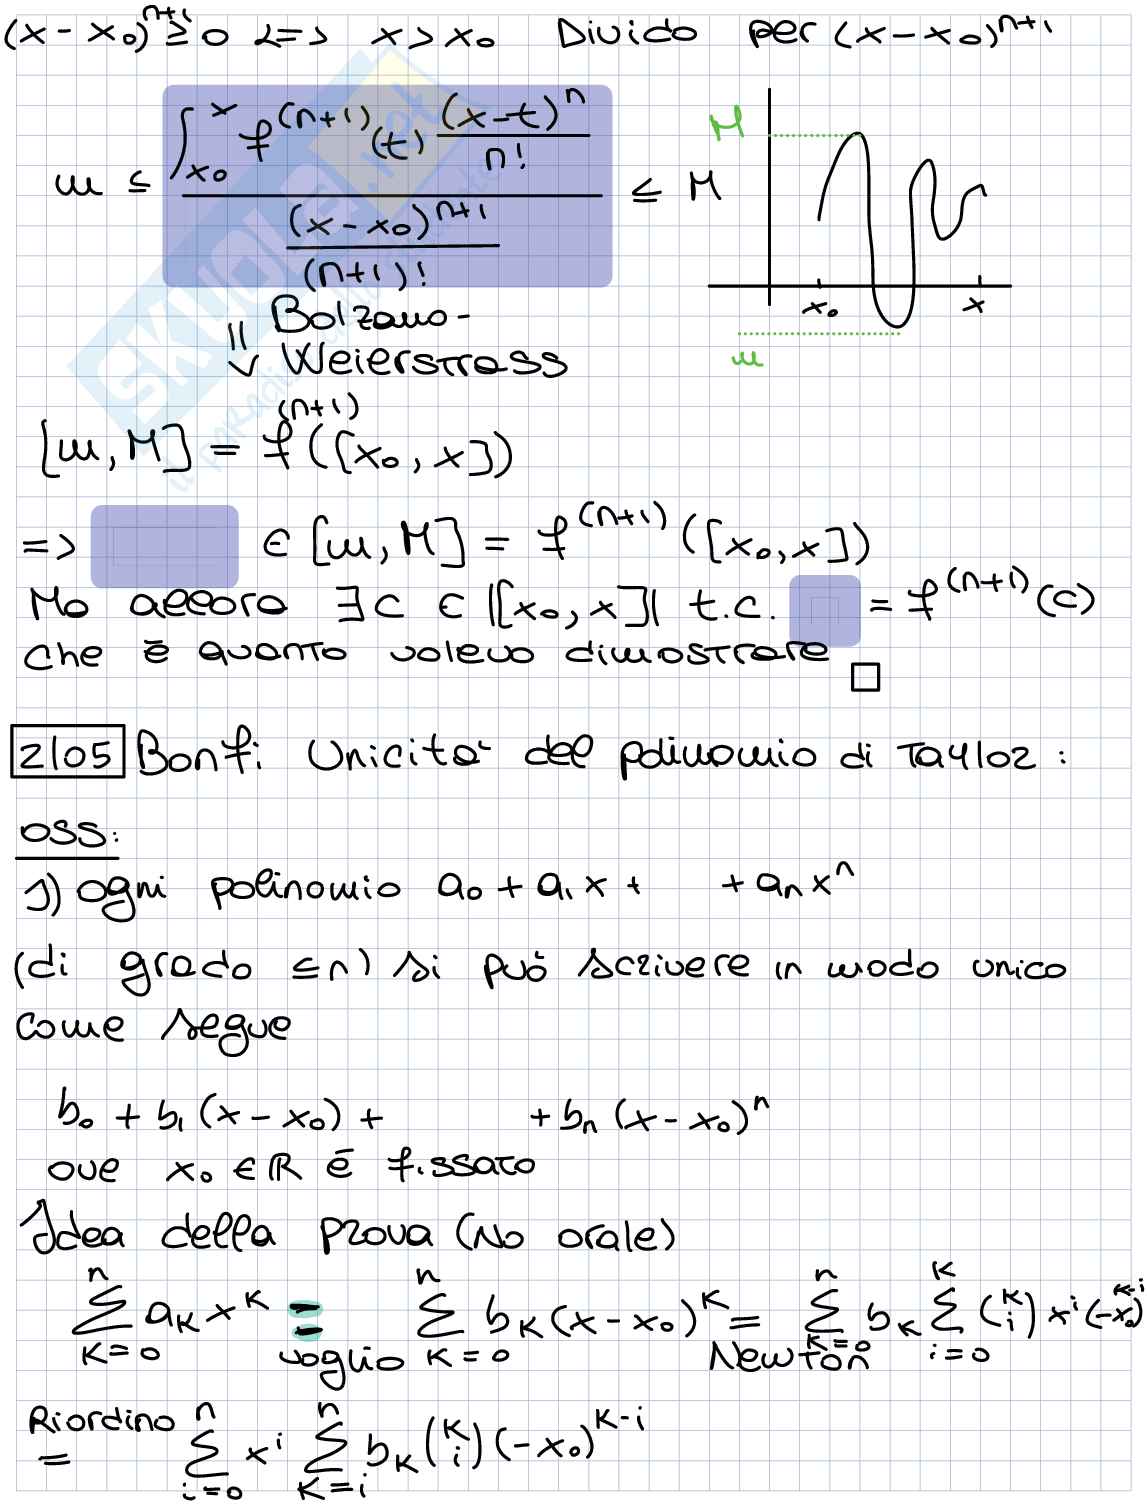 (x - x₀)ⁿ⁺¹ ≥ 0 <=> x > x₀ Divido per (x-x₀)ⁿ⁺¹
m ≤ \frac{∫_{x₀}^{x} f^{(n+1)}(t) \frac{(x-t)^n}{n!}}{\frac{(x-x₀)^{n+1}}{(n+1)!}} ≤ M
M
x₀ x
m
=> Bolzano-
Weierstrass
[m, M] = f^{(n+1)}([x₀, x])
=> ∈ [m, M] = f^{(n+1)}([x₀, x])
Ma allora ∃ c ∈ |[x₀, x]| t.c. = f^{(n+1)}(c)
che è quanto volevo dimostrare □
2/05 Bonfi Unicità del polinomio di Taylor :
OSS:
1) ogni polinomio a₀ + a₁x + + aₙxⁿ
(di grado ≤ n) si può scrivere in modo unico
come segue
b₀ + b₁(x - x₀) + + bₙ(x - x₀)ⁿ
ove x₀ ∈ ℝ è fissato
Idea della prova (No orale)
\sum_{k=0}^{n} a_k x^k = voglio \sum_{k=0}^{n} b_k (x-x₀)^k = Newton \sum_{k=0}^{n} b_k \sum_{i=0}^{k} \binom{k}{i} x^i (-x₀)^{k-i}
Riordino = \sum_{i=0}^{n} x^i \sum_{k=i}^{n} b_k \binom{k}{i} (-x₀)^{k-i}